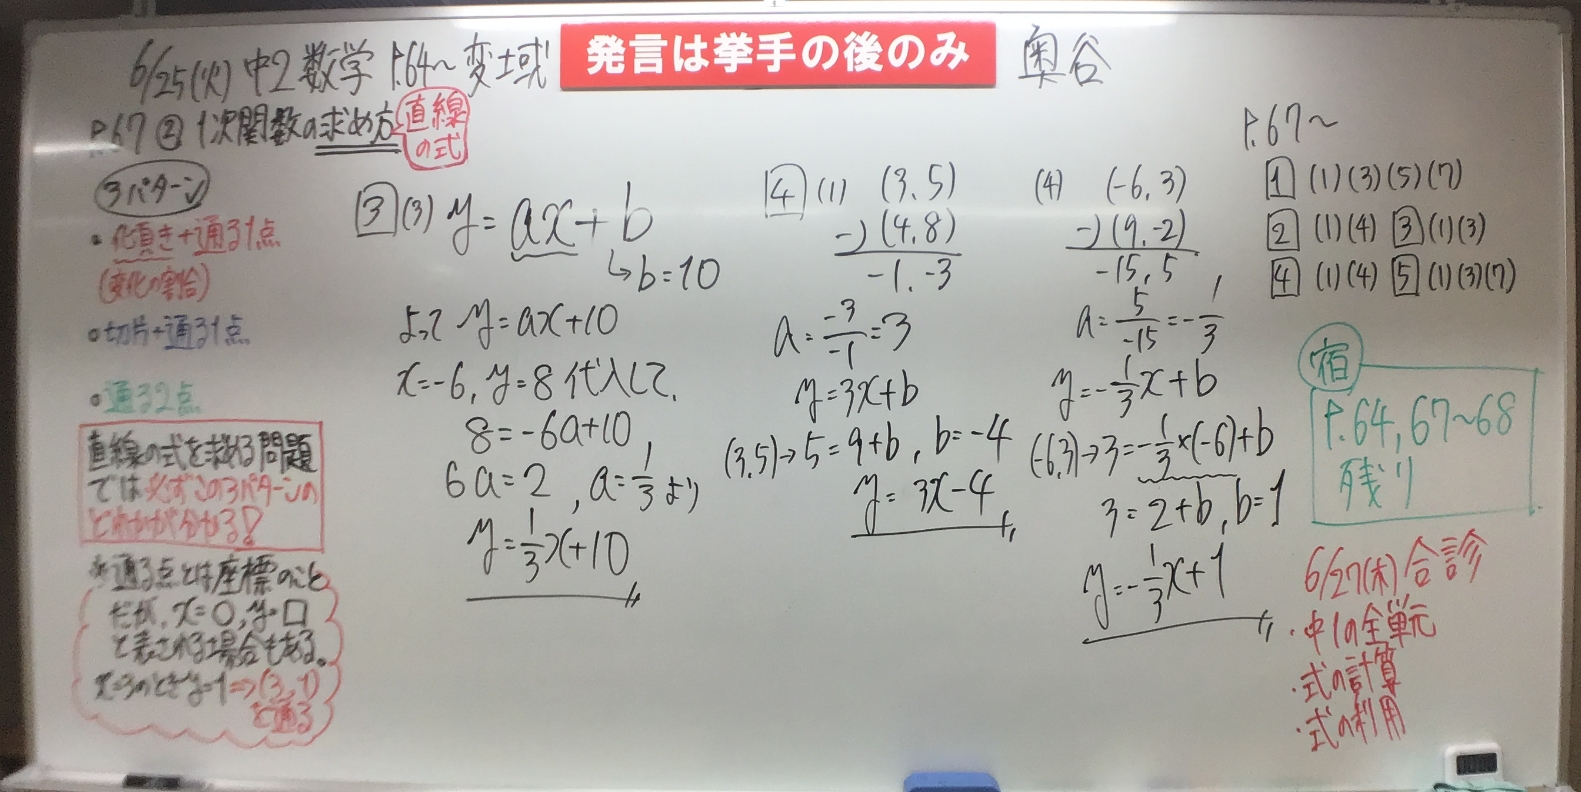 6/25(火) 中2 数学 P.64～ 変域
発言は挙手の後のみ
奥谷
P.67 ② 1次関数の求め方
直線
の式
3パターン
・傾き+通る1点
(変化の割合)
○切片+通る1点
○通る2点
直線の式を求める問題
では必ずこの3パターンの
どれかが分かる!
※通る点とは座標のこと
だが、x=0, y=□
と表される場合もある。
x=3のときy=1⇒(3,1)
を通る
3 (3) y=ax+b
↳b=10
よって y=ax+10
x=-6, y=8 代入して、
8=-6a+10,
6a=2, a=1/3より
y=1/3x+10
4 (1) (3,5)
-) (4,8)
-1, -3
a=-3/-1=3
y=3x+b
(3,5)→5=9+b, b=-4
y=3x-4
(4) (-6,3)
-) (9,-2)
-15, 5
a=5/-15=-1/3
y=-1/3x+b
(-6,3)→3=-1/3×(-6)+b
3=2+b, b=1
y=-1/3x+1
P.67～
1 (1)(3)(5)(7)
2 (1)(4) 3 (1)(3)
4 (1)(4) 5 (1)(3)(7)
宿
P.64, 67～68
残り
6/27(木)合診
・中1の全単元
・式の計算
・式の利用